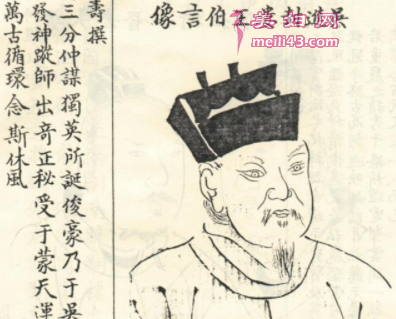 吳封王伯言像
meili43.com
壽撰
三分仲謀獨英所誕俊豪乃于吳
發神蹤師出奇正秘受于蒙天運
萬古循環念斯休風